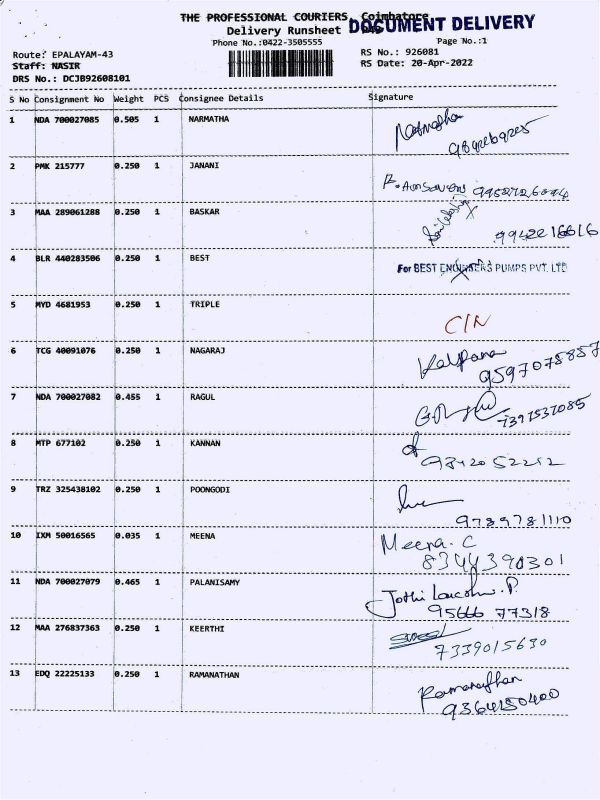 THE PROFESSIONAL COURIERS, Coimbatore
DOCUMENT DELIVERY
Delivery Runsheet
Phone No.:0422-3505555
Page No.:1
Route: EPALAYAM-43
RS No.: 926081
Staff: NASIR
RS Date: 20-Apr-2022
DRS No.: DCJB92608101
S No Consignment No Weight PCS Consignee Details Signature
1 NDA 700027085 0.505 1 NARMATHA
Narmatha
2 PMK 215777 0.250 1 JANANI
3 MAA 289061288 0.250 1 BASKAR
9942216616
4 BLR 440283506 0.250 1 BEST For BEST ENGINEERS PUMPS PVT. LTD
5 MYD 4681953 0.250 1 TRIPLE
C/N
6 TCG 40091076 0.250 1 NAGARAJ
Kalpana
9597075857
7 NDA 700027082 0.455 1 RAGUL
7397537085
8 MTP 677102 0.250 1 KANNAN
9342052252
9 TRZ 325438102 0.250 1 POONGODI
9789781110
10 IXM 50016565 0.035 1 MEENA
Meena. C
8344390301
11 NDA 700027079 0.465 1 PALANISAMY
95666 77318
12 MAA 276837363 0.250 1 KEERTHI
7339015630
13 EDQ 22225133 0.250 1 RAMANATHAN
Ramanathan
9364150400